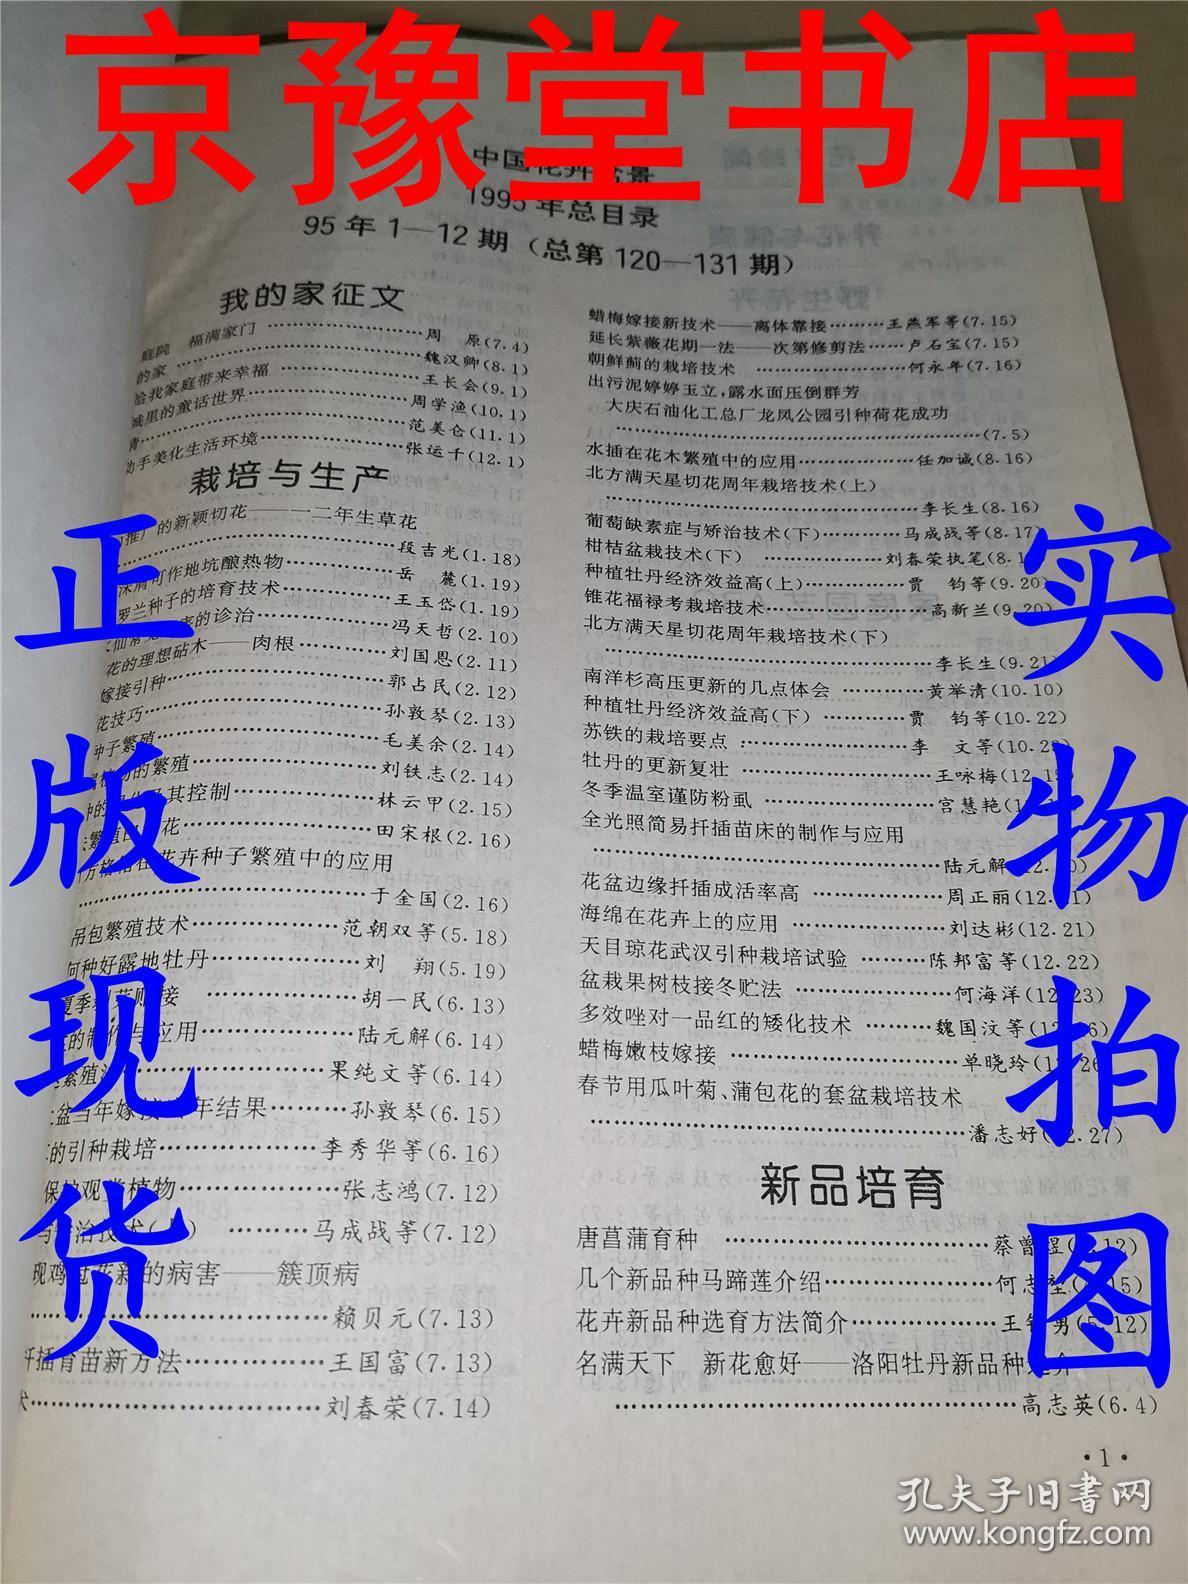 京豫堂书店
中国花卉盆景
1995年总目录
95年1—12期（总第120—131期）
我的家征文
庭院 福满家门……周 原(7.4)
的家……魏汉卿(8.1)
给我家庭带来幸福……王长会(9.1)
城里的童话世界……周学渔(10.1)
青……范美仑(11.1)
动手美化生活环境……张运千(12.1)
栽培与生产
的新颖切花——一二年生草花
……段吉光(1.18)
屑可作地坑酿热物……岳 麓(1.19)
罗兰种子的培育技术……王玉岱(1.19)
的诊治……冯天哲(2.10)
花的理想砧木——肉根……刘国恩(2.11)
嫁接引种……郭占民(2.12)
花技巧……孙敦琴(2.13)
种子繁殖……毛美余(2.14)
植物的繁殖……刘铁志(2.14)
其控制……林云甲(2.15)
花……田宋根(2.16)
花卉种子繁殖中的应用
……于金国(2.16)
吊包繁殖技术……范朝双等(5.18)
何种好露地牡丹……刘 翔(5.19)
夏季……接……胡一民(6.13)
的制作与应用……陆元解(6.14)
繁殖……果纯文等(6.14)
盆当年嫁接……年结果……孙敦琴(6.15)
的引种栽培……李秀华等(6.16)
保护观赏植物……张志鸿(7.12)
治技术……马成战等(7.12)
现鸡冠花新的病害——簇顶病
……赖贝元(7.13)
扦插育苗新方法……王国富(7.13)
……刘春荣(7.14)
蜡梅嫁接新技术——离体靠接……王燕军等(7.15)
延长紫薇花期一法——次第修剪法……卢石宝(7.15)
朝鲜蓟的栽培技术……何永年(7.16)
出污泥婷婷玉立,露水面压倒群芳
大庆石油化工总厂龙凤公园引种荷花成功
……(7.5)
水插在花木繁殖中的应用……任加诚(8.16)
北方满天星切花周年栽培技术(上)
……李长生(8.16)
葡萄缺素症与矫治技术(下)……马成战等(8.17)
柑桔盆栽技术(下)……刘春荣执笔(8.1
种植牡丹经济效益高(上)……贾 钧等(9.20)
锥花福禄考栽培技术……高新兰(9.20)
北方满天星切花周年栽培技术(下)
……李长生(9.21)
南洋杉高压更新的几点体会……黄举清(10.10)
种植牡丹经济效益高(下)……贾 钧等(10.22)
苏铁的栽培要点……李 文等(10.2
牡丹的更新复壮……王咏梅(12.1
冬季温室谨防粉虱……宫慧艳(1
全光照简易扦插苗床的制作与应用
……陆元解(12.
花盆边缘扦插成活率高……周正丽(12.
海绵在花卉上的应用……刘达彬(12.21)
天目琼花武汉引种栽培试验……陈邦富等(12.22)
盆栽果树枝接冬贮法……何海洋(12.23)
多效唑对一品红的矮化技术……魏国汶等(1
蜡梅嫩枝嫁接……单晓玲(1
春节用瓜叶菊、蒲包花的套盆栽培技术
……潘志好(12.27)
新品培育
唐菖蒲育种……蔡曾煜
几个新品种马蹄莲介绍……何志
花卉新品种选育方法简介……王
名满天下 新花愈好——洛阳牡丹新品种
……高志英(6.4)
·1·
正版现货
实物拍图
孔夫子旧书网
www.kongfz.com